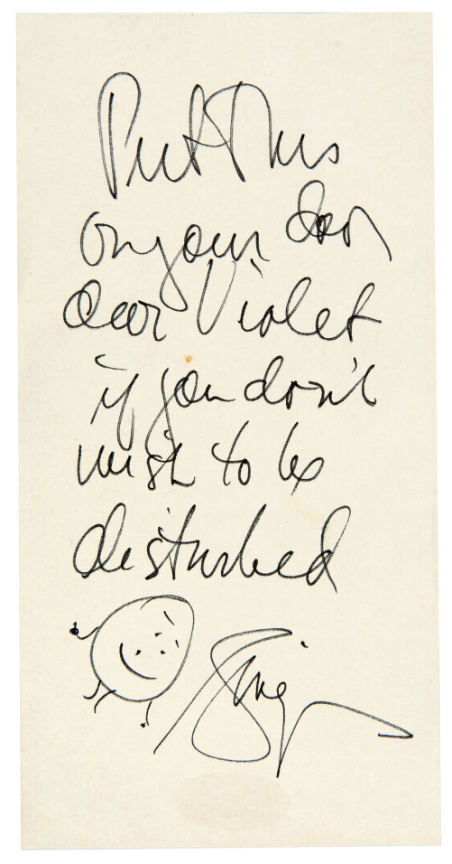 Put this
on your door
dear Violet
if you don't
wish to be
disturbed